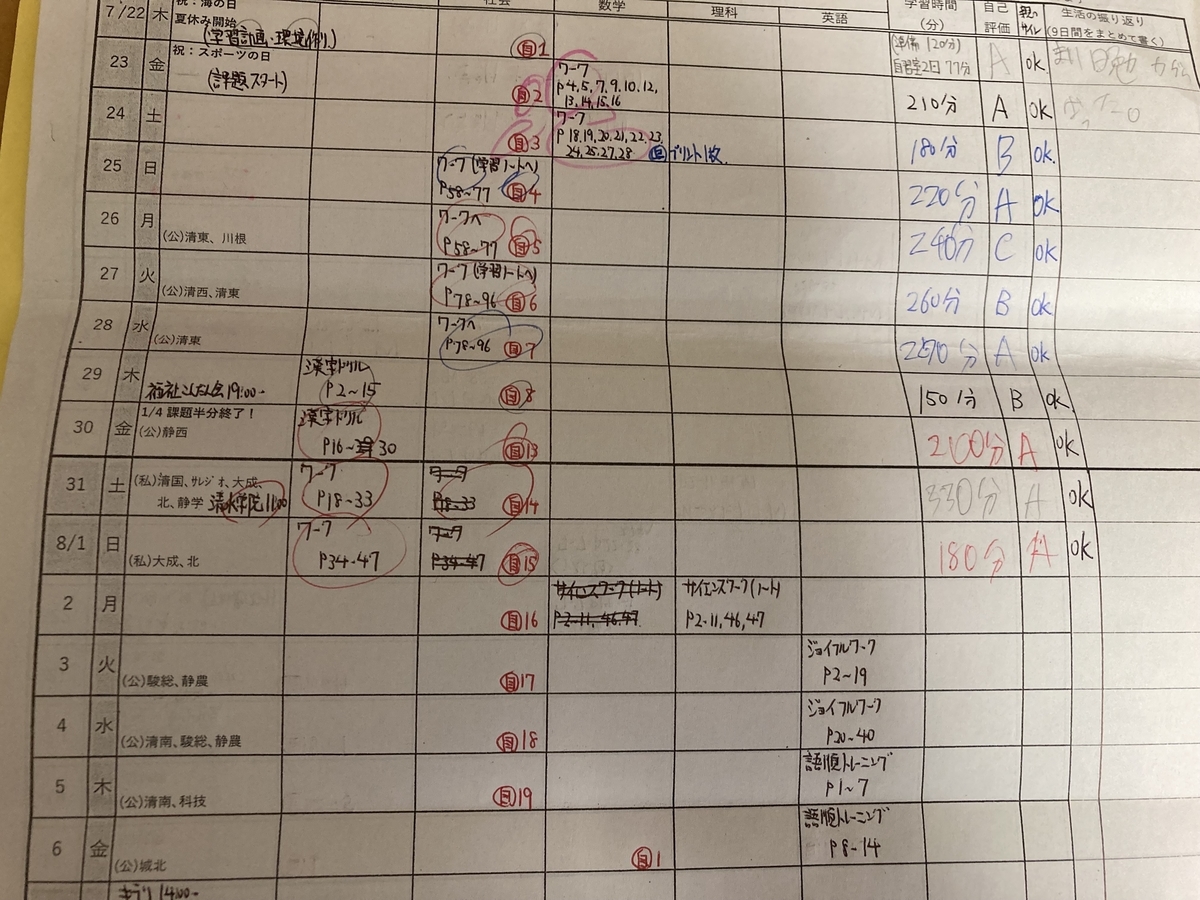 数学
理科
英語
学習時間
(分)
自己
評価
親の
サイン
生活の振り返り
(9日間をまとめて書く)
7/22 木 祝:海の日
夏休み開始
(学習計画・環境作り)
自1
(準備 120分)
自習室2日 77分
A
ok.
23 金 祝:スポーツの日
(課題スタート)
自2
ワーク
P4,5,7,9,10,12,
13,14,15,16
210分
A
ok
24 土
自3
ワーク
P18,19,20,21,22,23
24,25,27,28
自プリント1枚.
180分
B
ok.
25 日
ワーク(学習ノートへ)
P58~77 自4
220分
A
ok
26 月
(公)清東、川根
ワークへ
P58~77 自5
240分
C
ok
27 火
(公)清西、清東
ワーク(学習ノートへ)
P78~96 自6
260分
B
ok
28 水
(公)清東
ワークへ
P78~96 自7
A
ok
29 木
福祉こんだん会19:00-
漢字ドリル
P2~15
自8
150分
B
ok.
30 金
1/4 課題半分終了!
(公)静西
漢字ドリル
P16~30
自13
A
ok
31 土
(私)清国、サレジオ、大成、
北、静学 清水学院11:00
ワーク
P18~33
ワーク
P18~33
自14
330分
A
ok
8/1 日
(私)大成、北
ワーク
P34-47
ワーク
P34-47
自15
180分
A
ok
2 月
自16
サイエンスワーク(ノート)
P2-11,46,47
サイエンスワーク(ノート)
P2-11,46,47
3 火
(公)駿総、静農
自17
ジョイフルワーク
P2~19
4 水
(公)清南、駿総、静農
自18
ジョイフルワーク
P20~40
5 木
(公)清南、科技
自19
語順トレーニング
P1~7
6 金
(公)城北
自1
語順トレーニング
P8-14
キラリ 14:00-